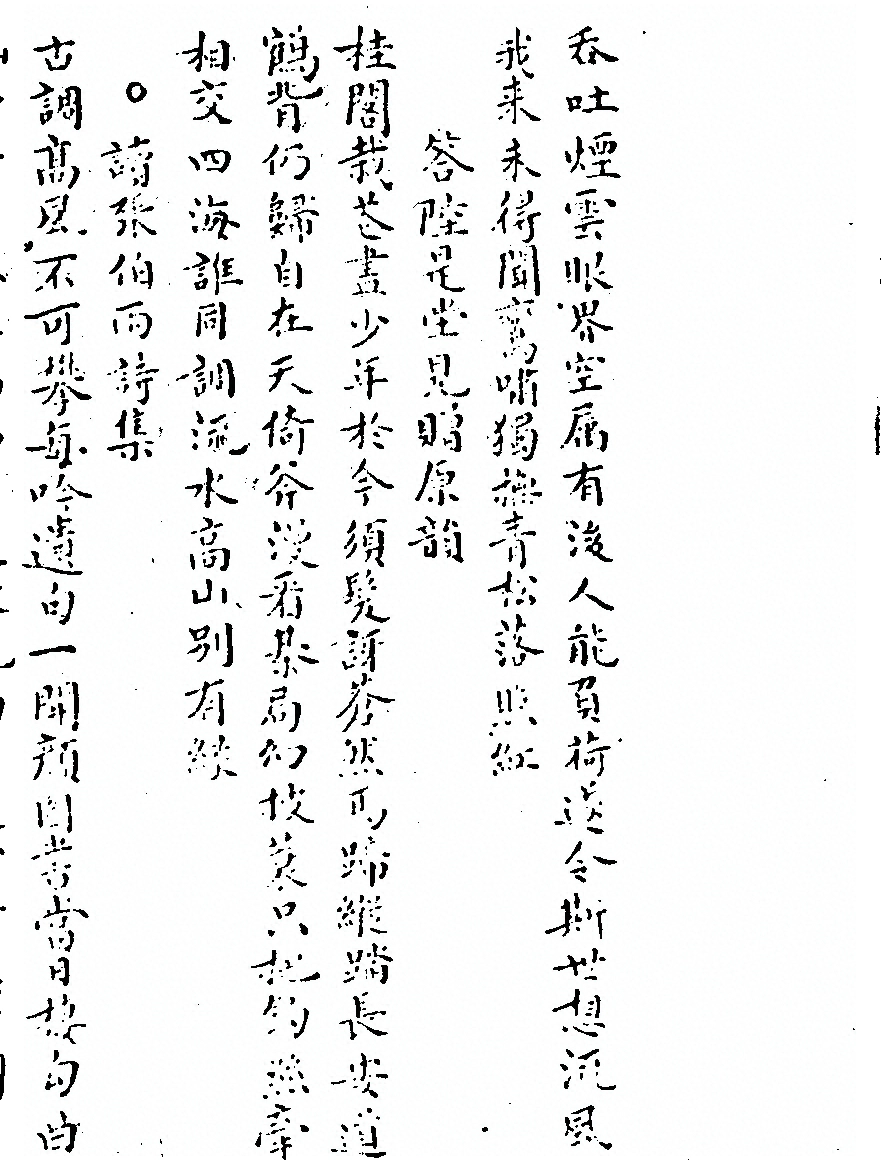 吞吐煙雲眼界空属有後人能負荷遂令斯世想流風
我来未得聞鸞嘯獨撫青松落照紅
答陸是堂見贈原韻
桂閣栽花盡少年於今須髮訝蒼然馬蹄縱踏長安道
鶴背仍歸自在天倚斧漫看棊局幻披蓑只把釣絲牽
相交四海誰同調流水高山別有緣
○讀張伯雨詩集
古調高風不可攀每吟遺句一開顏圖書當日棲句曲